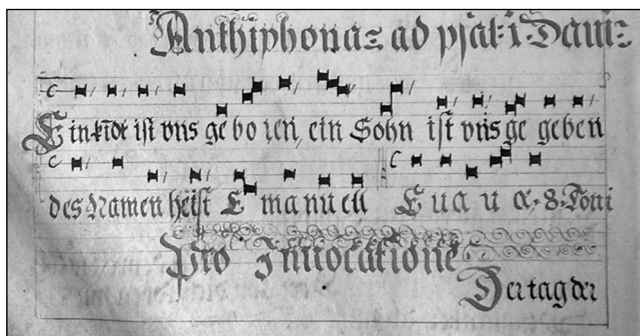 Anthiphona ad psal: 1. Dauiz
Ein kindt ist vns ge bo ren, ein Sohn ist vns ge geben
des Namen heist E ma nu ell E u a u æ. 8. Toni
Pro Inuocatione
Der tag der